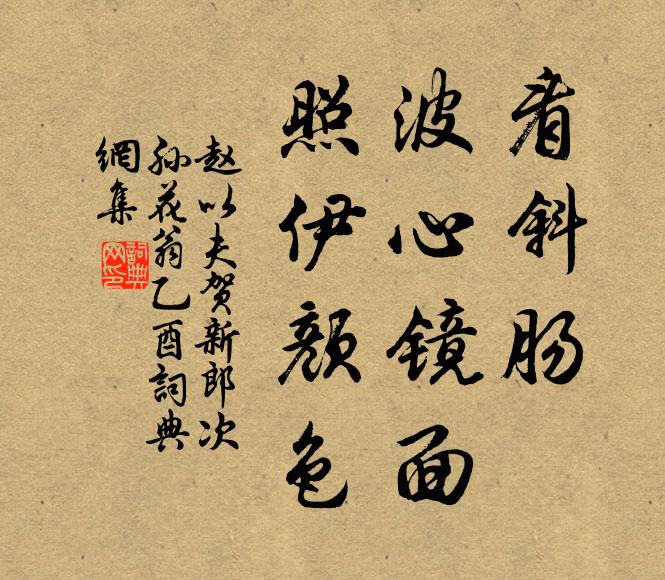 看斜肠
波心镜面
照伊颜色
赵以夫贺新郎次
孙花翁乙酉詞典
網集
詞典
网印